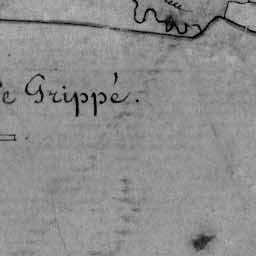 e Grippé.